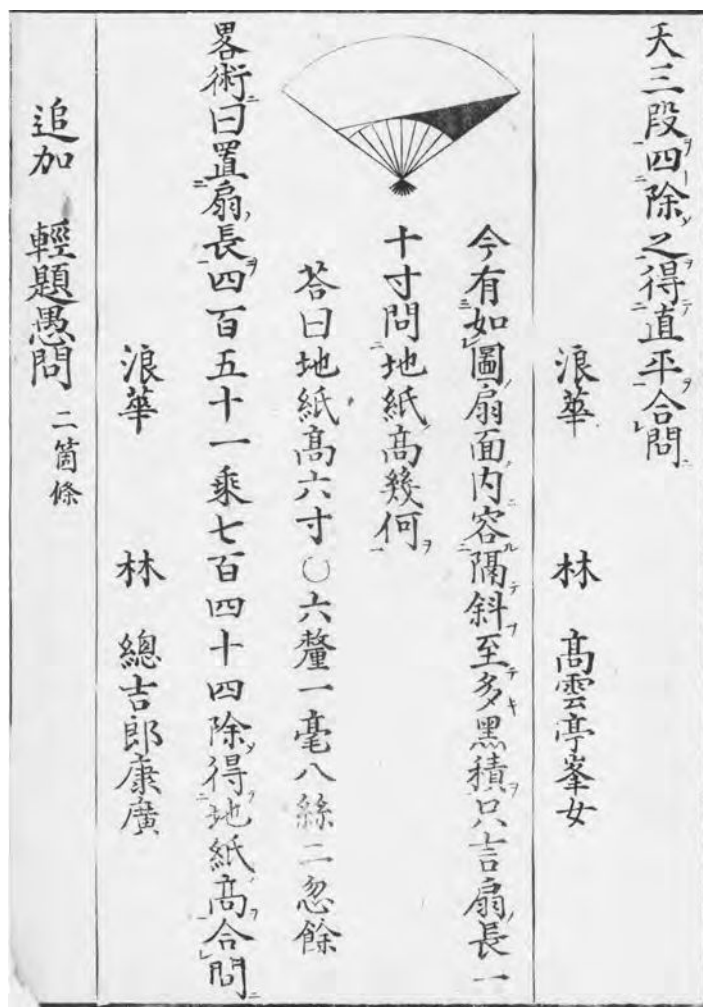 天三段四除之得直平合問
浪華 林 高雲亭峯女
今有如圖扇面内容隔斜至多黒積只言扇長一
十寸問地紙高幾何
荅曰地紙高六寸〇六釐一毫八絲二忽餘
畧術曰置扇長四百五十一乘七百四十四除得地紙高合問
浪華 林 總吉郎康廣
追加 輕題愚問 二箇條